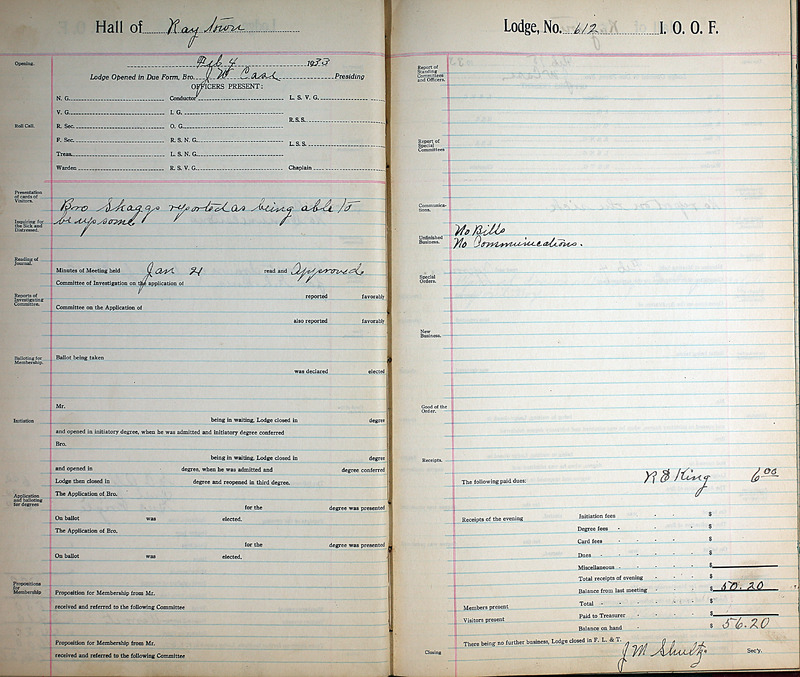 Hall of Raytown
Opening.
Feb. 4 1933
Lodge Opened in Due Form, Bro. J M Cash Presiding
OFFICERS PRESENT:
N. G. Conductor L. S. V. G.
V. G. I. G.
R. S. S.
Roll Call.
R. Sec. O. G.
F. Sec. R. S. N. G.
L. S. S.
Treas. L. S. N. G.
Warden R. S. V. G. Chaplain
Presentation of cards of Visitors.
Bro Skaggs reported as being able to
be up some
Inquiring for the Sick and Distressed.
Reading of Journal.
Minutes of Meeting held Jan 21 read and Approved
Committee of Investigation on the application of
reported favorably
Reports of Investigating Committee.
Committee on the Application of
also reported favorably
Balloting for Membership.
Ballot being taken
was declared elected
Mr.
Initiation
being in waiting, Lodge closed in degree
and opened in initiatory degree, when he was admitted and initiatory degree conferred
Bro.
being in waiting, Lodge closed in degree
and opened in degree, when he was admitted and degree conferred
Lodge then closed in degree and reopened in third degree.
Application and balloting for degrees
The Application of Bro.
for the degree was presented
On ballot was elected.
The Application of Bro.
for the degree was presented
On ballot was elected.
Propositions for Membership
Proposition for Membership from Mr.
received and referred to the following Committee
Proposition for Membership from Mr.
received and referred to the following Committee
Lodge, No. 612 I. O. O. F.
Report of Standing Committees and Officers.
Report of Special Committees
Communications.
No Bills
Unfinished Business.
No Communications.
Special Orders.
New Business.
Good of the Order.
Receipts.
The following paid dues: R E King 6 00
Receipts of the evening Initiation fees $
Degree fees $
Card fees $
Dues $
Miscellaneous $
Total receipts of evening $
Balance from last meeting $ 50.20
Members present Total $
Visitors present Paid to Treasurer $
Balance on hand $ 56.20
There being no further business, Lodge closed in F. L. & T.
Closing J M Shultz Sec'y.